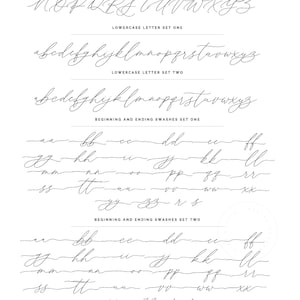 N O P Q R S T U V W X Y Z
LOWERCASE LETTER SET ONE
abcdefghijklmnopqrstuvwxyz
LOWERCASE LETTER SET TWO
abcdefghijklmnopqrstuvwxyz
BEGINNING AND ENDING SWASHES SET ONE
aa bb cc dd ee ff
gg hh ii jj kk ll
mm nn oo pp qq rr
ss tt uu vv ww xx
yy zz r s
BEGINNING AND ENDING SWASHES SET TWO
aa bb cc dd ee ff
gg hh ii jj kk ll
mm nn oo pp qq rr
ss tt uu vv ww xx